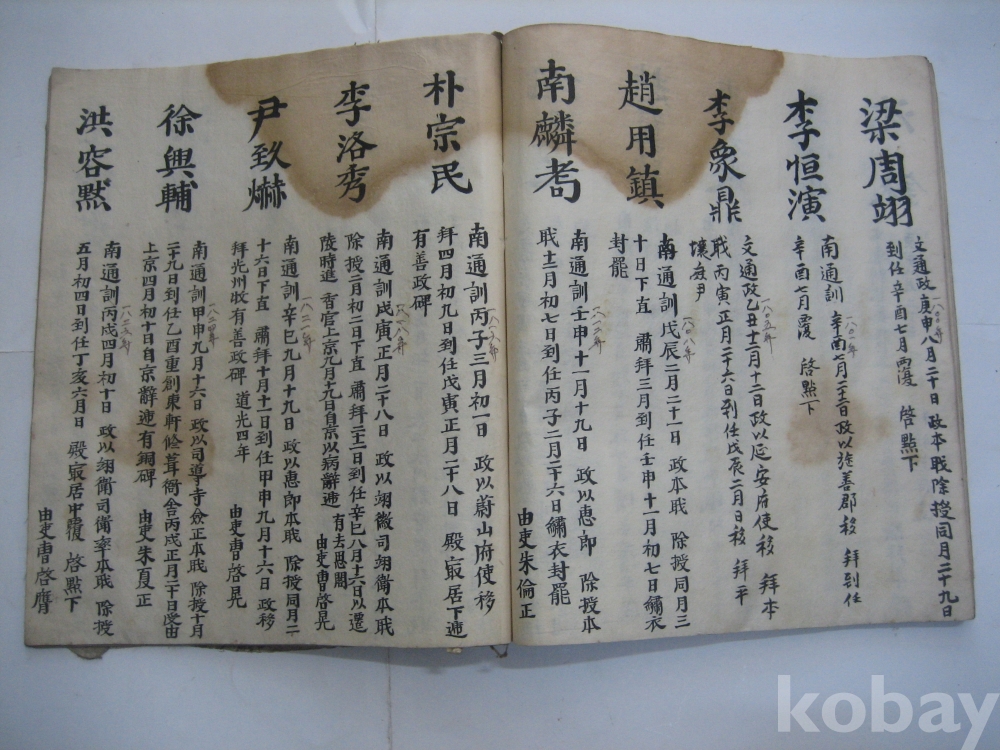 梁周翊
文通政庚申八月二十日 政本職除授同月二十九日
到任辛酉七月 啓點下
李恒演
南通訓 辛酉七月二十二日政以旌善郡移 拜到任
辛酉七月覆 啓點下
李象鼎
文通政乙丑十二月十二日政以延安府使移 拜本
職丙寅正月二十六日到任戊辰二月日移 拜平
壤庶尹
趙用鎮
南通訓戊辰二月二十一日 政本職 除授同月三
十日下直 肅拜三月到任壬申十一月初七日繡衣
封罷
南麟耇
南通訓壬申十一月十九日 政以惠郎 除授本
職十二月初七日到任丙子二月二十六日繡衣封罷
由吏朱倫正
朴宗民
南通訓丙子三月初一日 政以蔚山府使移
拜四月初九日到任戊寅正月二十八日 殿最居下遞
有善政碑
李洛秀
南通訓戊寅正月二十八日 政以翊衛司翊衛本職
除授二月初二日下直 肅拜二十二日到任辛巳八月十六日以遷
陵時進 香官上京九月十九日自京以病辭遞 有去思閣
由吏曹啓晃
尹致爀
南通訓辛巳九月十九日 政以惠郎本職 除授同月二
十六日下直 肅拜十月十一日到任甲申九月十六日 政移
拜光州牧有善政碑 道光四年
由吏曹啓晃
徐興輔
南通訓甲申九月十六日 政以司䆃寺僉正本職 除授十月
二十九日到任乙酉重創東軒修葺衙舍丙戌正月二十日受由
上京四月初十日自京辭遞有銅碑
由吏朱夏正
洪容默
南通訓丙戌四月初十日 政以翊衛司衛率本職 除授
五月初四日到任丁亥六月日 殿最居中覆 啓點下
由吏曹啓膺
kobay